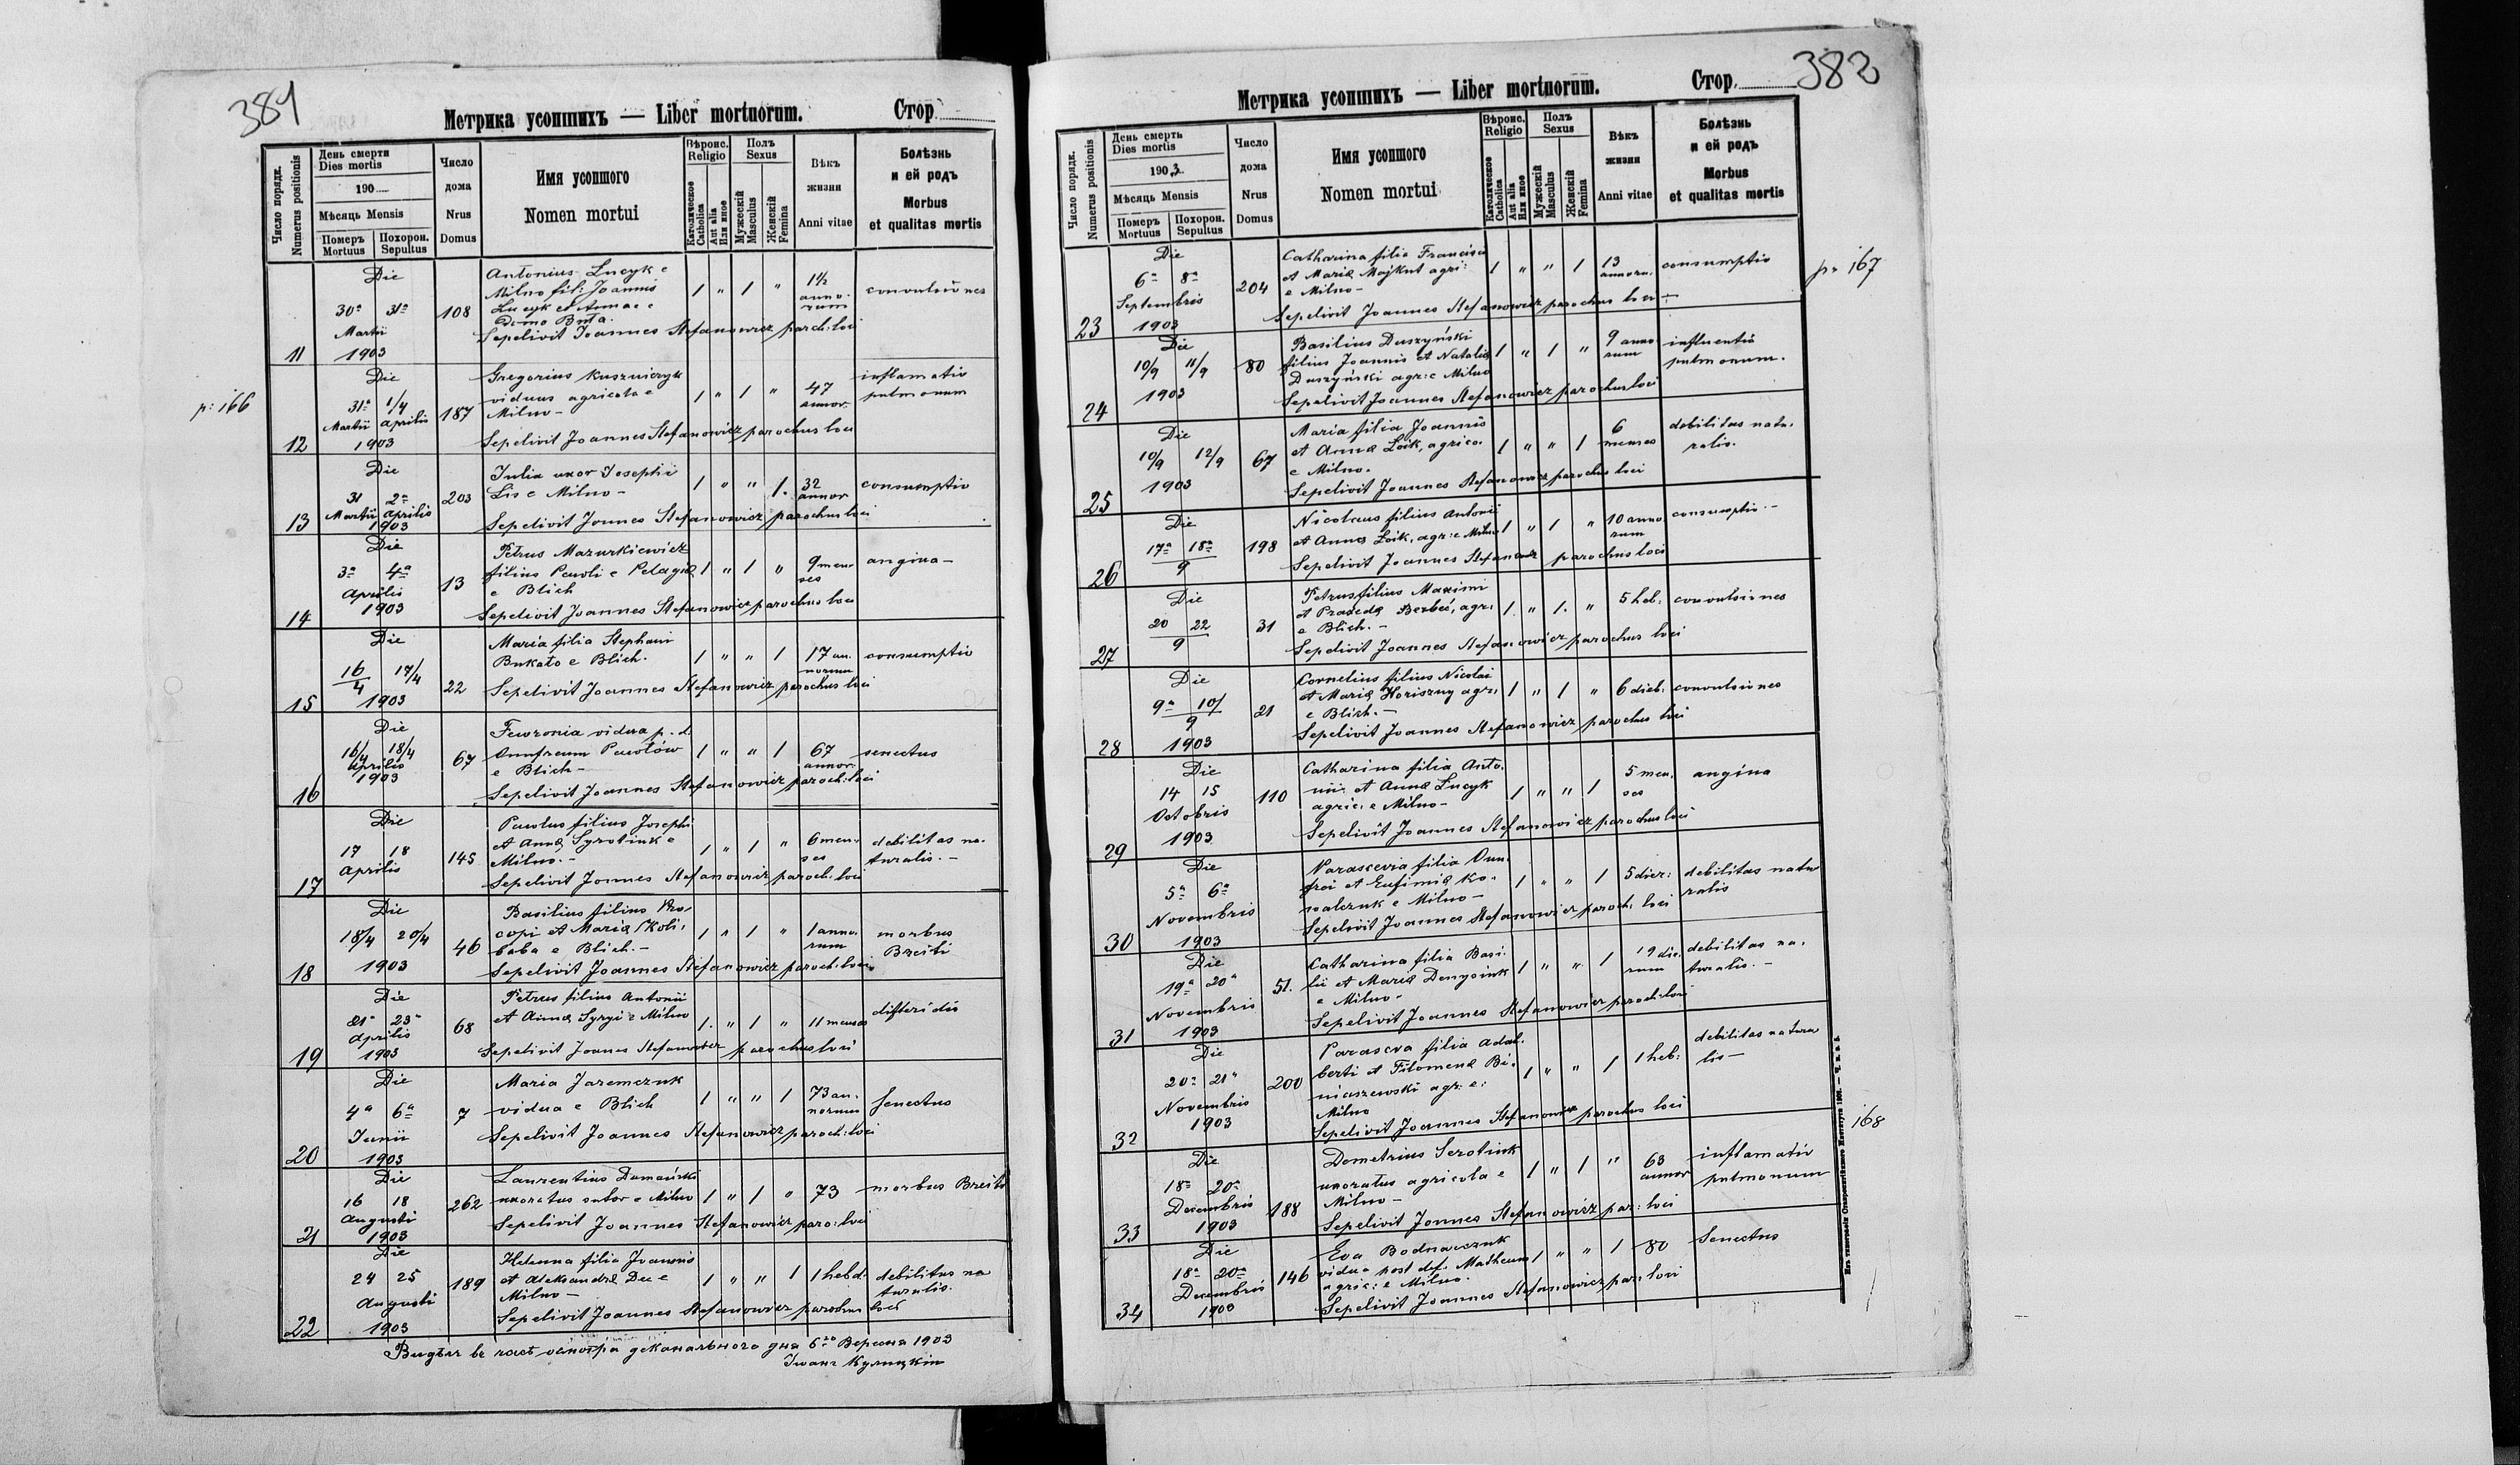 381
Метрика усопшихъ — Liber mortuorum.
Стор.
Число порядк.
Numerus positionis
День смерти
Dies mortis
190
Мѣсяць Mensis
Померъ
Mortuus
Похорон.
Sepultus
Число
дома
Nrus
Domus
Имя усопшого
Nomen mortui
Вѣроис.
Religio
Католическое
Catholica
Aut alia
Или иное
Полъ
Sexus
Мужескій
Masculus
Женскій
Femina
Вѣкъ
жизни
Anni vitae
Болѣзнь
и ей родъ
Morbus
et qualitas mortis
11
Die
30ª 31ª
Martii
1903
108
Antonius Lucyk e
Milno fil: Joannis
Lucyk et Annae e
Domo
Sepelivit Joannes Stefanowicz paroch: loci
1 " 1 "
1½
anno-
rum
convulsiones
p: 166
12
Die
31ª 1/4
Martii Aprilis
1903
187
Gregorius Kuszniczyk
viduus agricola e
Milno -
Sepelivit Joannes Stefanowicz parochus loci
1 " 1 "
47
annor.
inflamatio
pulmonum
13
Die
31 2ª
Martii Aprilis
1903
203
Julia uxor Josephi
Lis e Milno -
Sepelivit Jonnes Stefanowicz parochus loci
1 " " 1.
32
annor
consumptio
14
Die
3ª 4ª
Aprilis
1903
13
Petrus Mazurkiewicz
filius Pauli e Pelagia
e Blich
Sepelivit Joannes Stefanowicz parochus loci
1 " 1 "
9 men-
ses
angina -
15
Die
16/4 17/4
1903
22
Maria filia Stephani
Bukato e Blich.
Sepelivit Joannes Stefanowicz parochus loci
1 " " 1
17 an.
norum
consumptio
16
Die
16/4 18/4
Aprilis
1903
67
Fewronia vidua p. d.
Onufreum Pawłów
e Blich -
Sepelivit Joannes Stefanowicz paroch: loci
1 " " 1
67
annor.
senectus
17
Die
17 18
Aprilis
145
Paulus filius Josephi
et Anna Syrotiuk e
Milno. -
Sepelivit Jonnes Stefanowicz paroch: loci
1 " 1 "
6 men-
ses
debilitas na-
turalis. -
18
Die
18/4 20/4
1903
46
Basilius filius Pro-
copi et Maria Skoli-
baba e Blich. -
Sepelivit Joannes Stefanowicz paroch: loci
1 " 1 "
1 anno-
rum
morbus
Breiti
19
Die
21ª 23ª
Aprilis
1903
68
Petrus filius Antonii
et Anna Syryi e Milno
Sepelivit Joanes Stefanowicz parochus loci
1. " 1 "
11 menses
difteridis
20
Die
4ª 6ª
Junii
1903
7
Maria Jaremczuk
vidua e Blich
Sepelivit Joannes Stefanowicz paroch: loci
1 " " 1
73 an-
norum
Senectus
21
Die
16 18
Augusti
1903
262
Laurentius Domański
uxoratus sutor e Milno
Sepelivit Joannes Stefanowicz paro: loci
1 " 1 "
73
morbus Breiti
22
Die
24 25
Augusti
1903
189
Helenna filia Joannis
et Aleksandra Dec e
Milno -
Sepelivit Joannes Stefanowicz parochus loci
1 " " 1
1 hebd.
debilitas na
turalis.
Видѣлъ въ часѣ осмотра деканального дня 6го Вересня 1903
Іванъ Кулицкій
382
Метрика усопшихъ — Liber mortuorum.
Стор.
Число порядк.
Numerus positionis
День смерть
Dies mortis
1903
Мѣсяць Mensis
Померъ
Mortuus
Похорон.
Sepultus
Число
дома
Nrus
Domus
Имя усопшого
Nomen mortui
Вѣроис.
Religio
Католическое
Catholica
Aut alia
Или иное
Полъ
Sexus
Мужескій
Masculus
Женскій
Femina
Вѣкъ
жизни
Anni vitae
Болѣзнь
и ей родъ
Morbus
et qualitas mortis
23
Die
6ª 8ª
Septembris
1903
204
Catharina filia Francisci
et Maria Majkut agri:
e Milno -
Sepelivit Joannes Stefanowicz parochus loci -
1 " " 1
13
annoru.
consumptio
p: 167
24
Die
10/9 11/9
1903
80
Basilius Duszyński
filius Joannis et Natalia
Duszyński agr: e Milno
Sepelivit Joannes Stefanowicz parochus loci
1 " 1 "
9 anno
rum
influentio
pulmonum.
25
Die
10/9 12/9
1903
67
Maria filia Joannis
et Anna Loik, agrico.
e Milno.
Sepelivit Joannes Stefanowicz parochus loci
1 " " 1
6
menses
debilitas natu-
ralis.
26
Die
17ª 18ª
9
198
Nicolaus filius Antonii
et Anna Loik, agr: e Milno
Sepelivit Joannes Stefanowicz parochus loci
1 " 1 "
10 anno
rum
consumptio. -
27
Die
20 22
9
31
Petrus filius Maximi
et Praxeda Berbeć, agr:
e Blich. -
Sepelivit Joannes Stefanowicz parochus loci
1. " 1. "
5 heb:
convulsiones
28
Die
9ª 10/
9
1903
21
Cornelius filius Nicolai
et Maria Horiszny agr:
e Blich. -
Sepelivit Joannes Stefanowicz parochus loci
1 " 1 "
6 dieb:
convulsiones
29
Die
14 15
Octobris
1903
110
Catharina filia Anto-
nii et Anna Lucyk
agric: e Milno -
Sepelivit Joannes Stefanowicz parochus loci
1 " " 1
5 men-
ses
angina
30
Die
5ª 6ª
Novembris
1903
Parascevia filia Onu-
frei et Eufimia Ko-
walczuk e Milno -
Sepelivit Joannes Stefanowicz paroch: loci
1 " " 1
5 dier:
debilitas natu
ralis
31
Die
19ª 20ª
Novembris
1903
51.
Catharina filia Basi-
lii et Maria Denysiuk
e Milno -
Sepelivit Joannes Stefanowicz paroch: loci
1 " " 1
19 die-
rum
debilitas na-
turalis. -
32
Die
20ª 21ª
Novembris
1903
200
Parasceva filia Adal-
berti et Filomena Bi-
niaszewski agr: e:
Milno
Sepelivit Joannes Stefanowicz parochus loci
1 " " 1
1 heb:
debilitas natura
lis -
33
Die
18ª 20ª
Decembris
1903
188
Demetrius Serotiuk
uxoratus agricola e
Milno -
Sepelivit Jonnes Stefanowicz par: loci
1 " 1 "
63
annor
inflamatio
pulmonum
168
34
Die
18ª 20ª
Decembris
1903
146
Eva Bodnarczuk
vidua post def. Matheum
agric: e Milno.
Sepelivit Joannes Stefanowicz par: loci
1 " " 1
80
Senectus